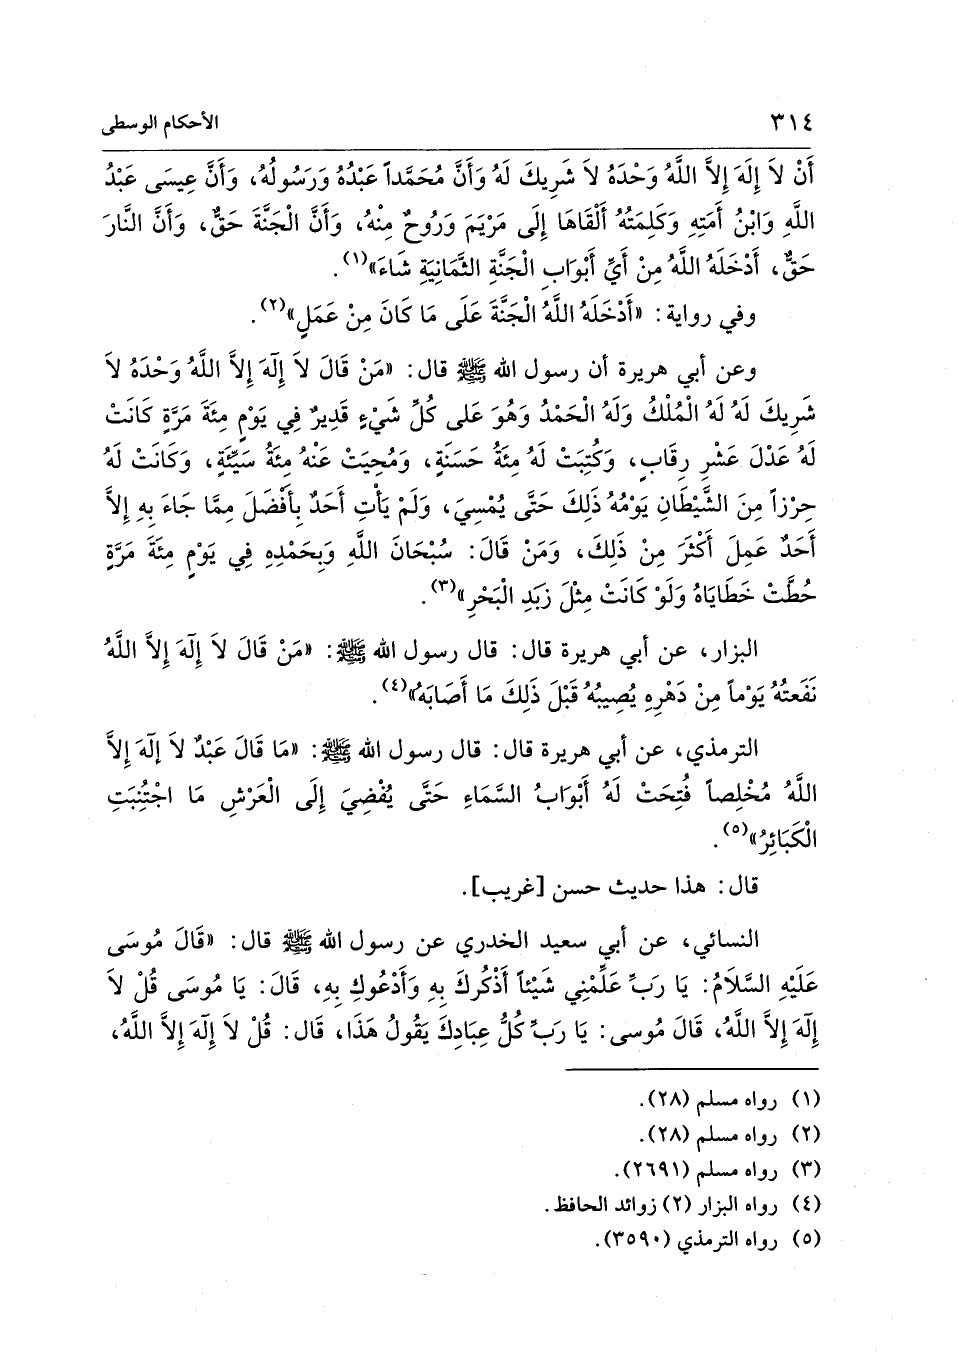 ٣١٤ الأحكام الوسطى
أَنْ لاَ إِلَهَ إِلاَّ اللَّهُ وَحْدَهُ لاَ شَرِيكَ لَهُ وَأَنَّ مُحَمَّداً عَبْدُهُ وَرَسُولُهُ، وَأَنَّ عِيسَى عَبْدُ
اللَّهِ وَابْنُ أَمَتِهِ وَكَلِمَتُهُ أَلْقَاهَا إِلَى مَرْيَمَ وَرُوحٌ مِنْهُ، وَأَنَّ الْجَنَّةَ حَقٌّ، وَأَنَّ النَّارَ
حَقٌّ، أَدْخَلَهُ اللَّهُ مِنْ أَيِّ أَبْوَابِ الْجَنَّةِ الثَّمَانِيَةِ شَاءَ»(١).
وفي رواية: «أَدْخَلَهُ اللَّهُ الْجَنَّةَ عَلَى مَا كَانَ مِنْ عَمَلٍ»(٢).
وعن أبي هريرة أن رسول الله ﷺ قال: «مَنْ قَالَ لاَ إِلَهَ إِلاَّ اللَّهُ وَحْدَهُ لاَ
شَرِيكَ لَهُ لَهُ الْمُلْكُ وَلَهُ الْحَمْدُ وَهُوَ عَلى كُلِّ شَيْءٍ قَدِيرٌ فِي يَوْمٍ مِئَةَ مَرَّةٍ كَانَتْ
لَهُ عَدْلَ عَشْرِ رِقَابٍ، وَكُتِبَتْ لَهُ مِئَةُ حَسَنَةٍ، وَمُحِيَتْ عَنْهُ مِئَةُ سَيِّئَةٍ، وَكَانَتْ لَهُ
حِرْزاً مِنَ الشَّيْطَانِ يَوْمُهُ ذَلِكَ حَتَّى يُمْسِيَ، وَلَمْ يَأْتِ أَحَدٌ بِأَفْضَلَ مِمَّا جَاءَ بِهِ إِلاَّ
أَحَدٌ عَمِلَ أَكْثَرَ مِنْ ذَلِكَ، وَمَنْ قَالَ: سُبْحَانَ اللَّهِ وَبِحَمْدِهِ فِي يَوْمٍ مِئَةَ مَرَّةٍ
حُطَّتْ خَطَايَاهُ وَلَوْ كَانَتْ مِثْلَ زَبَدِ الْبَحْرِ»(٣).
البزار، عن أبي هريرة قال: قال رسول الله ﷺ: «مَنْ قَالَ لاَ إِلَهَ إِلاَّ اللَّهُ
نَفَعتُهُ يَوْماً مِنْ دَهْرِهِ يُصِيبُهُ قَبْلَ ذَلِكَ مَا أَصَابَهُ»(٤).
الترمذي، عن أبي هريرة قال: قال رسول الله ﷺ: «مَا قَالَ عَبْدٌ لاَ إِلَهَ إِلاَّ
اللَّهُ مُخْلِصاً فُتِحَتْ لَهُ أَبْوَابُ السَّمَاءِ حَتَّى يُفْضِيَ إِلَى الْعَرْشِ مَا اجْتُنِبَتِ
الْكَبَائِرُ»(٥).
قال: هذا حديث حسن [غريب].
النسائي، عن أبي سعيد الخدري عن رسول الله ﷺ قال: «قَالَ مُوسَى
عَلَيْهِ السَّلاَمُ: يَا رَبِّ عَلِّمْنِي شَيْئاً أَذْكُركَ بِهِ وَأَدْعُوكِ بِهِ، قَالَ: يَا مُوسَى قُلْ لاَ
إِلَهَ إِلاَّ اللَّهُ، قَالَ مُوسى: يَا رَبِّ كُلُّ عِبَادِكَ يَقُولُ هَذَا، قَال: قُلْ لاَ إِلَهَ إِلاَّ اللَّهُ،
(١) رواه مسلم (٢٨).
(٢) رواه مسلم (٢٨).
(٣) رواه مسلم (٢٦٩١).
(٤) رواه البزار (٢) زوائد الحافظ.
(٥) رواه الترمذي (٣٥٩٠).